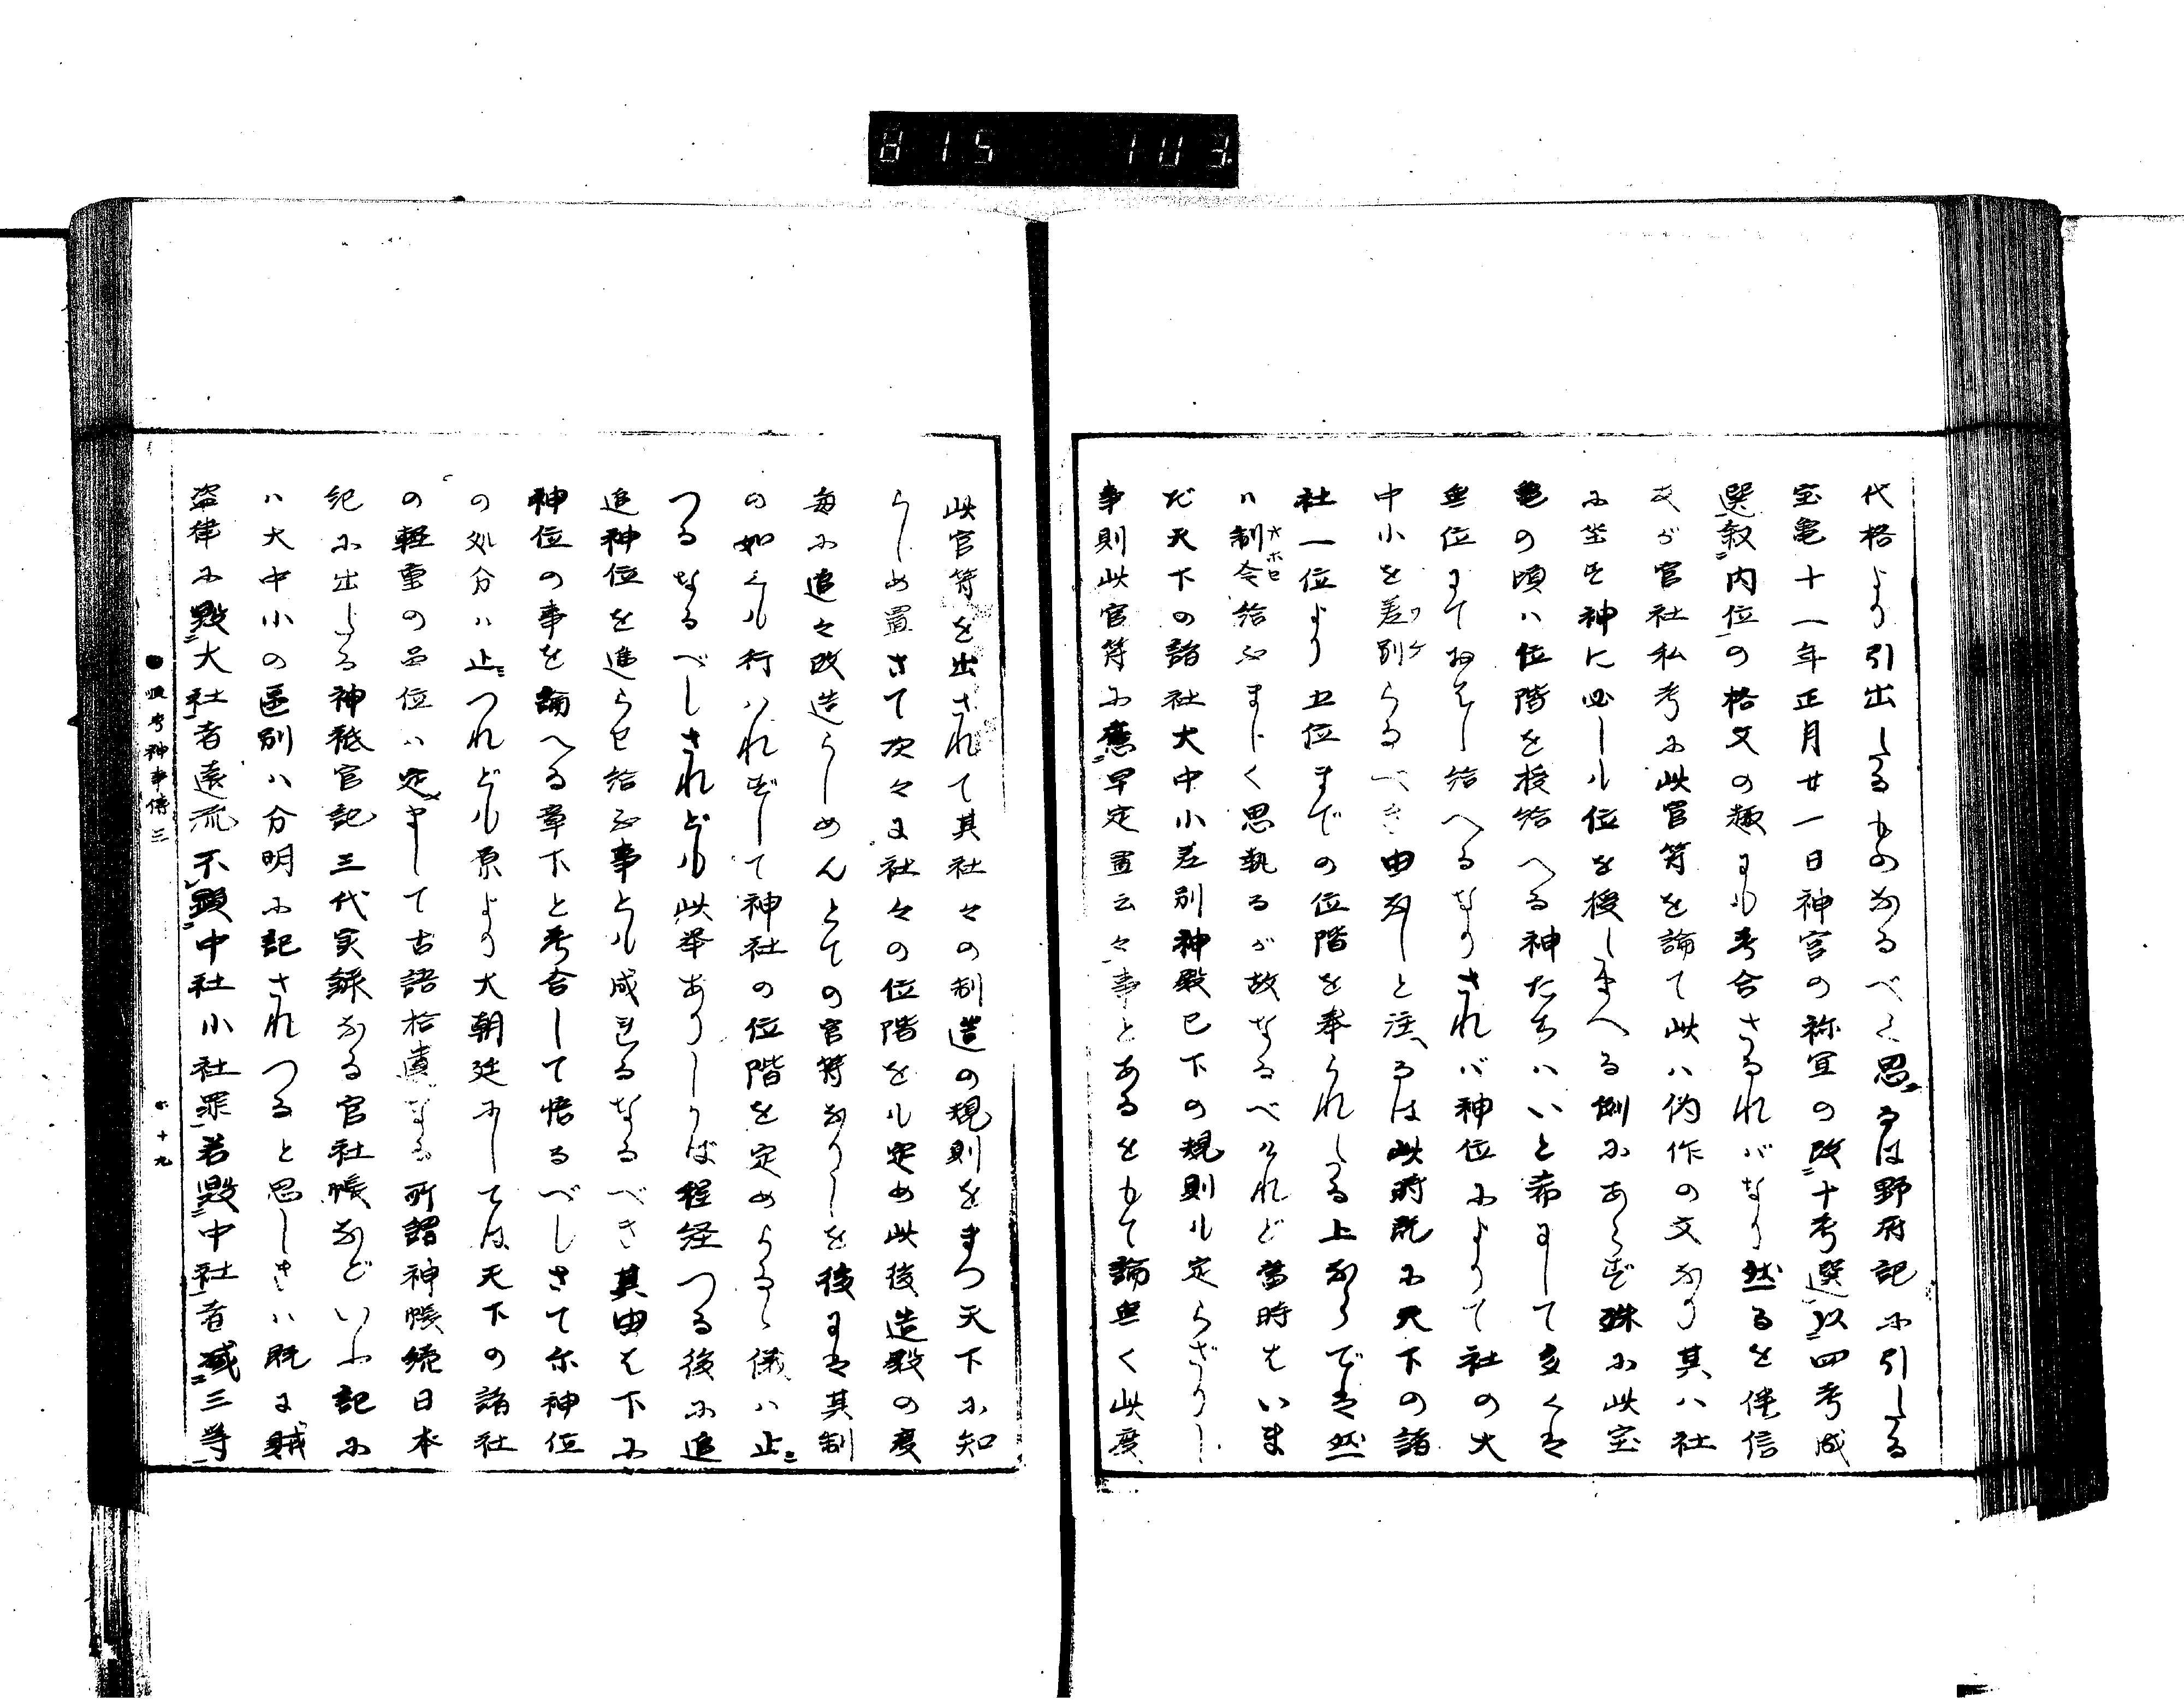 815 103
代格より引出したるものなるべく思るは野府記に引したる
宝亀十一年正月廿一日神宮の祢宜の改十考選以四考成
選叙内位の格文の趣にも考合さるればなり然るを伴信
友が官社私考に此官符を論て此ハ偽作の文なり其ハ社
に坐す神に必しも位を授したまへる例にあらず殊に此宝
亀の頃ハ位階を授給へる神たちハいと希にして多くは
無位にておはし給へるなりされバ神位によりて社の大
中小を差別らるべき由なしと注るは此時既に天下の諸
社一位より五位までの位階を奉られしる上ならでは然
ハ制令給ふまじく思執るが故なるべけれど当時はいま
だ天下の諸社大中小差別神殿已下の規則も定らざりし
事則此官符に應早定置云々事とあるをもて論無く此度
此官符を出されて其社々の制造の規則をまつ天下に知
らしめ置さて次々に社々の位階をも定め此後造殿の度
毎に追々改造らしめんとての官符なりしを後には其制
の如くも行ハれずして神社の位階を定めらるゝ儀ハ止
つるなるべしされども此挙ありしかば程経つる後に追
追神位を進らせ給ふ事とも成れるなるべき其由は下に
神位の事を論へる章下と考合して悟るべしさて尓神位
の処分ハ止つれども原より大朝廷にしては天下の諸社
の軽重の品位ハ定まして古語拾遺なる所謂神帳続日本
紀に出したる神祇官記三代実録なる官社帳などいふ記に
ハ大中小の區別ハ分明に記されつると思しきハ既に賊
盗律に毀大社者遠流不顕中社小社罪若毀中社者減三等
順考神事傳三
十九